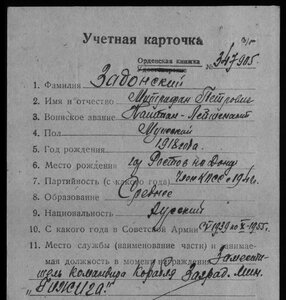 Учетная карточка
Орденская книжка
Удостоверение № 347905.
1. Фамилия Задонский
2. Имя и отчество Митрофан Петрович
3. Воинское звание Капитан-Лейтенант
4. Пол Мужской
5. Год рождения 1918 года.
6. Место рождения гор Ростов на Дону
7. Партийность (с какого года) Член КПСС с
8. Образование Среднее
9. Национальность Русский
10. С какого года в Советской Армии С 1939 по 1955г.
11. Место службы (наименование части) и занимае-
мая должность к моменту награждения Замести-
тель командира Корабля Заград. Мин.